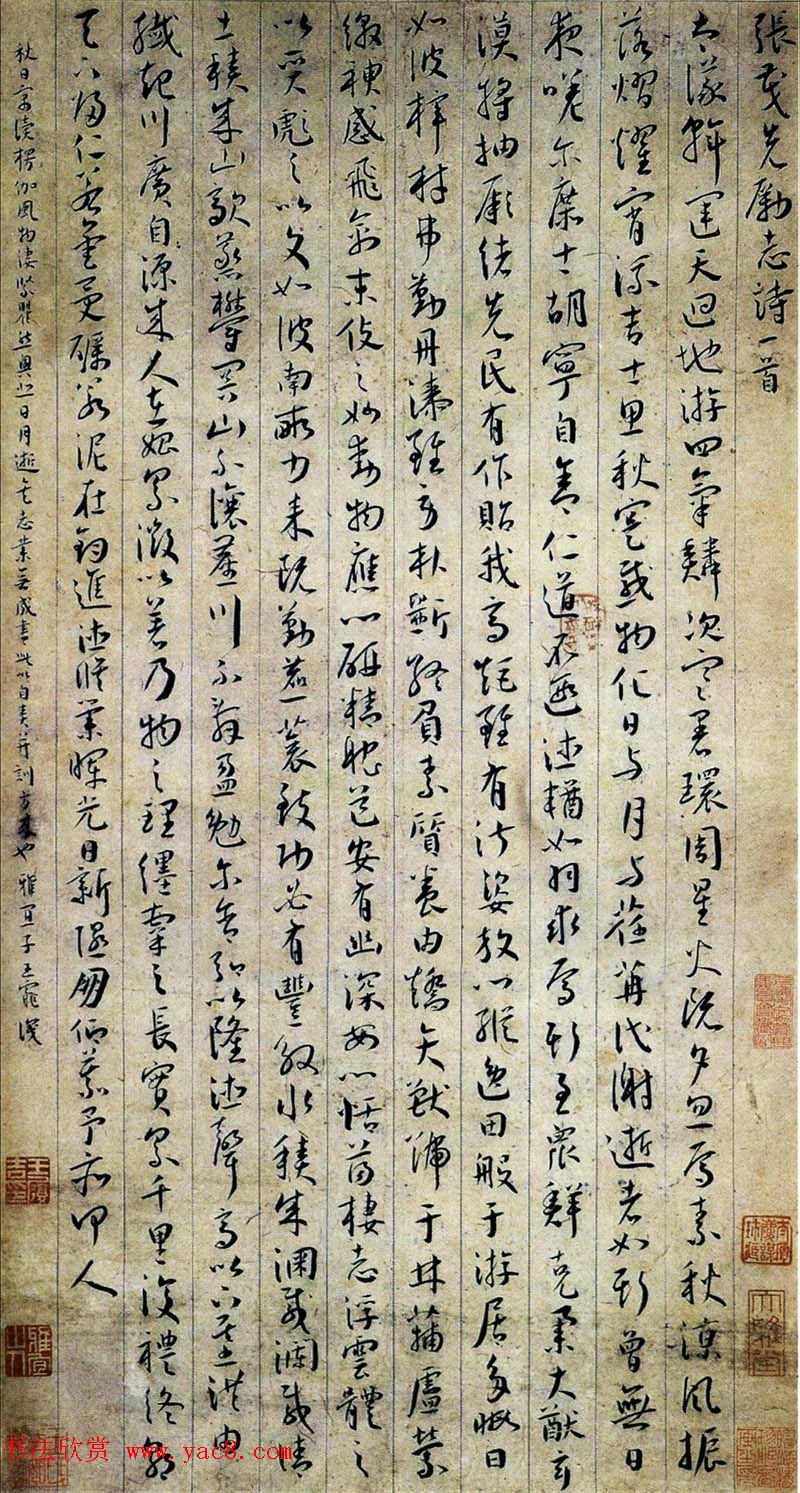 張茂先勵志詩一首
大儀斡運天迴地游四氣鱗次寒暑環周星火既夕忽焉素秋涼風振
落熠燿宵流吉士思秋寔感物化日与月与荏苒代謝逝者如斯曾無日
夜嗟尔庶士胡寧自舍仁道不遐德輶如羽求焉斯至衆鮮克舉大猷玄
漠將抽厥緒先民有作貽我高矩雖有淑姿放心縱逸田般于游居多暇日
如彼梓材弗勤丹漆雖勞朴斲終負素質養由矯矢獸號于林蒲盧縈
繳神感飛禽末伎之妙動物應心研精耽道安有幽深安心恬蕩棲志浮雲體之
以質彪之以文如彼南畝力耒既勤藨蓘致功必有豐殷水積成淵載瀾載清
土積成山歊蒸鬱冥山不讓塵川不辞盈勉尔含弘以隆德聲高以下基洪由
纖起川廣自源成人在始累微以著乃物之理纆牽之長實累千里復禮終朝
天下歸仁若金受礪若泥在鈞進德修業暉光日新隰朋仰慕予亦何人
秋日寓讀楞伽風物淒緊瞿然興悲日月逝矣志業無成書此以自責并訓方来也雅宜子王寵識
书法欣赏 www.yac8.com